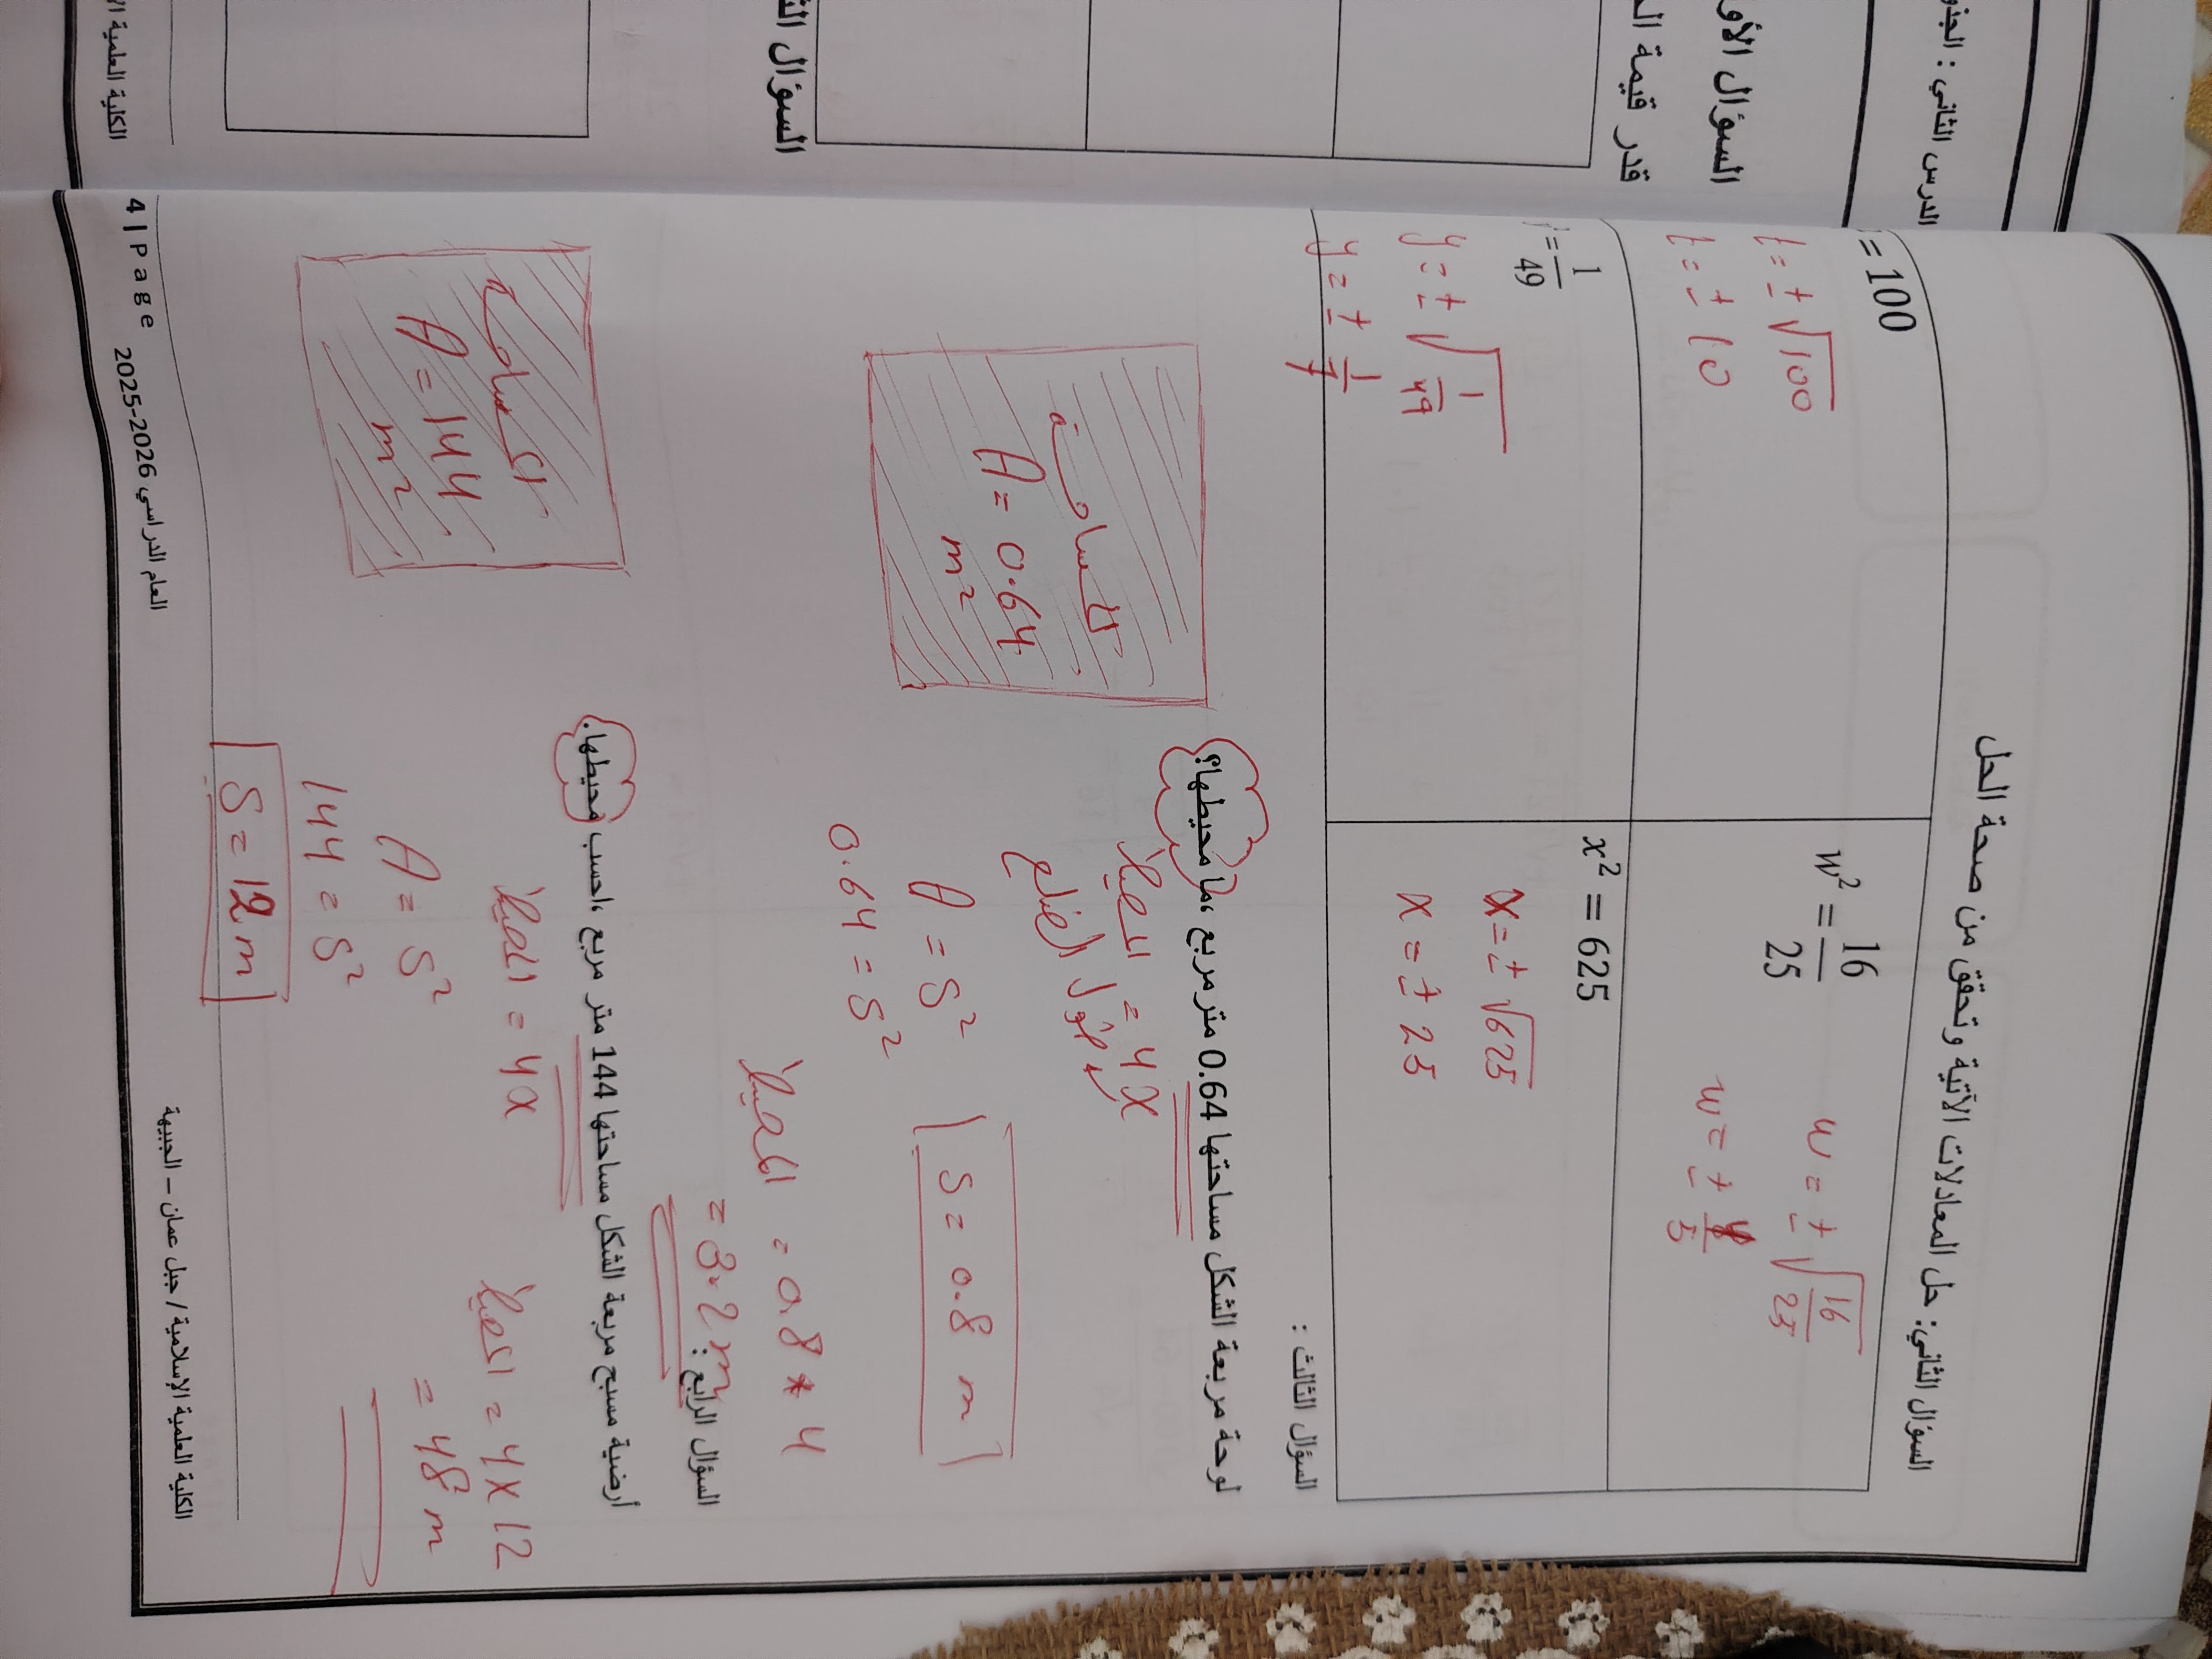 الدرس الثاني : الجذو
السؤال الأو
قدر قيمة ال
السؤال الث
الكلية العلمية الإ
السؤال الثاني: حل المعادلات الآتية وتحقق من صحة الحل
w² = 16/25
w = ± √16/25
w = ± 4/5
= 100
t = ± √100
t = ± 10
x² = 625
x = ± √625
x = ± 25
= 1/49
y = ± √1/49
y = ± 1/7
السؤال الثالث :
لوحة مربعة الشكل مساحتها 0.64 متر مربع ،ما محيطها؟
المحيط = 4 ×
طول الضلع
A = S²
0.64 = S²
S = 0.8 m
المحيط = 0.8 * 4
= 3.2 m
المساحة
A = 0.64
m²
السؤال الرابع :
أرضية مسبح مربعة الشكل مساحتها 144 متر مربع ،احسب محيطها.
المحيط = 4 ×
A = S²
144 = S²
S = 12 m
المحيط = 4 × 12
= 48 m
المساحة
A = 144
m²
الكلية العلمية الإسلامية / جبل عمان – الجبيهة
العام الدراسي 2025-2026
4 | Page